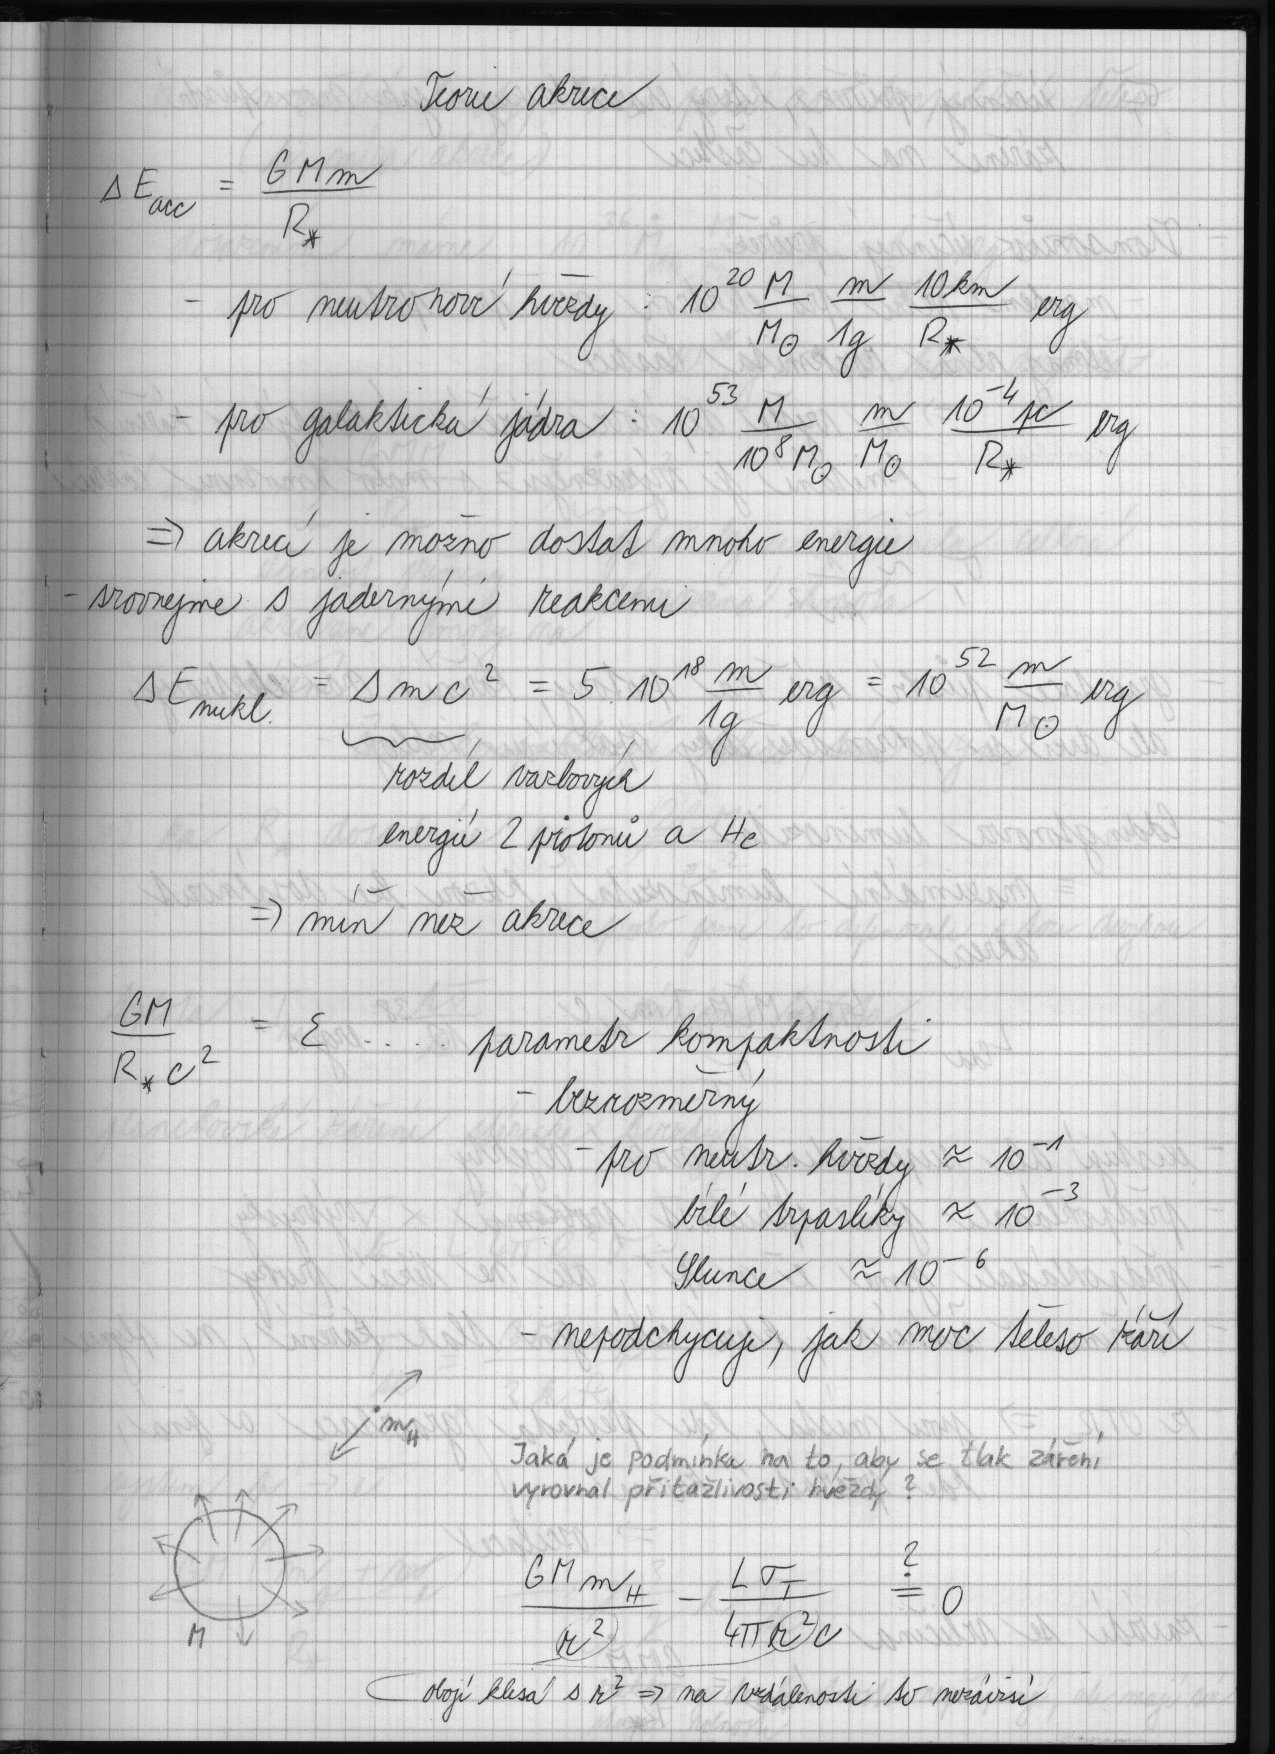 Teorie akrece
ΔE_acc = GMm / R_*
- pro neutronové hvězdy : 10^20 M/M_⊙ m/1g 10km/R_* erg
- pro galaktická jádra : 10^53 M/10^8 M_⊙ m/M_⊙ 10^-4 pc/R_* erg
⇒ akrecí je možno dostat mnoho energie
- srovnejme s jadernými reakcemi
ΔE_nukl. = Δmc^2 = 5 . 10^18 m/1g erg = 10^52 m/M_⊙ erg
rozdíl vazbových
energií 2 protonů a He
⇒ míň než akrece
GM / R_* c^2 = ε ..... parametr kompaktnosti
- bezrozměrný
- pro neutr. hvězdy ≈ 10^-1
bílé trpaslíky ≈ 10^-3
Slunce ≈ 10^-6
- nepodchycuje, jak moc těleso září
m_H
Jaká je podmínka na to, aby se tlak záření
vyrovnal přitažlivosti hvězdy ?
M
GMm_H / r^2 - Lσ_T / 4πr^2c ≟ 0
obojí klesá s r^2 ⇒ na vzdálenosti to nezávisí